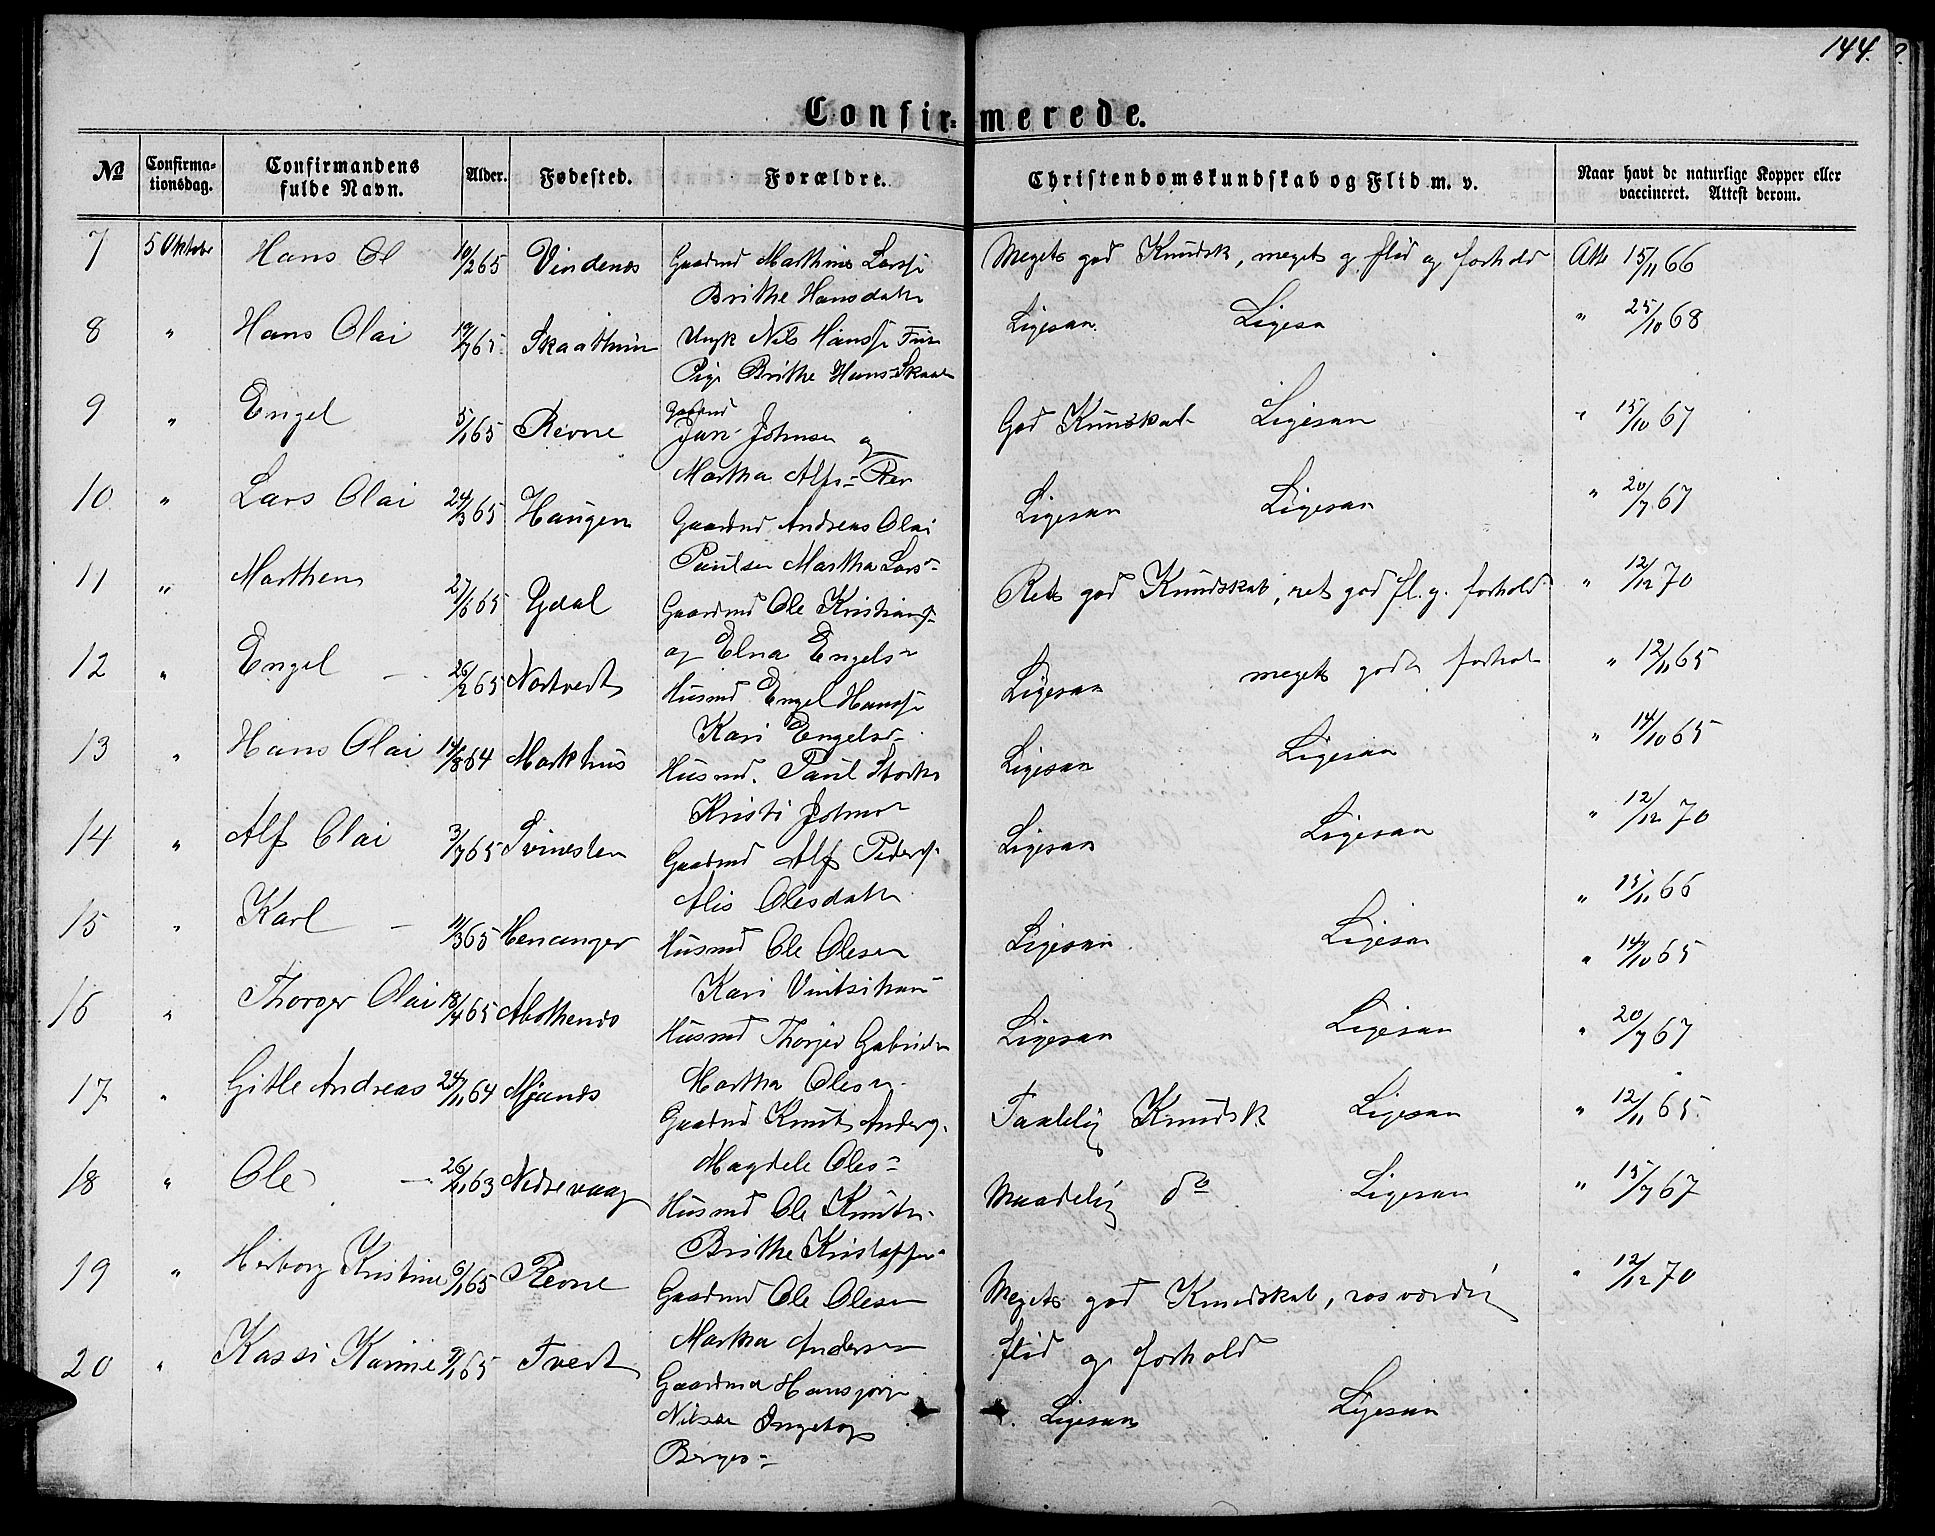 144.
Confirmerede.
№ Confirmationsdag. Confirmandens fulde Navn. Alder. Fødested. Forældre. Christendomskundskab og Flid m. v. Naar havt de naturlige Kopper eller vaccineret. Attest derom.
7 5 Oktobr Hans Ol 10/2 65 Vindenes Gaardmd Mathias Larss. Meget god Kundsk, meget g. flid og forhold Atte 15/11 66
Brithe Hansdatr
8 " Hans Olai 19/7 65 Ungk Nils Hanss. Ligesaa Ligesa " 25/10 68
Pige Brithe Hans-
9 " Engel 5/1 65 Revne Gaardmd
Johnsen og God Kundskab Ligesaa " 15/10 67
Martha Alfs-
10 " Lars Olai 24/3 65 Haugen Gaardmd Andreas Olai Ligesaa Ligesaa " 20/7 67
Paulsen Martha Lars-
11 " Marthen 27/6 65 Ydal Gaardmd Ole Kristians- Ret god Kundskab, ret god fl. g. forhold " 12/12 70
og Elna Engels-
12 " Engel 26/2 65 Nortvedt Husmd Engel Hanss. Ligesaa meget godt forhol " 12/11 65
Kari Engelsd-
13 " Hans Olai 14/8 64 Markhus Husmd. Paul Ligesaa Ligesaa " 14/10 65
Kristi Johns-
14 " Alf Olai 3/7 65 Gaardmd Alf Peders- Ligesaa Ligesaa " 12/12 70
Alis Olesdatr
15 " Karl 11/3 65 Henanger Husmd Ole Olesen Ligesaa Ligesaa " 15/11 66
Kari
16 " Thorger Olai 18/4 65 Husmd Thorger Gabriels Ligesaa Ligesaa " 14/10 65
Martha Oles
17 " Gitle Andreas 24/11 64 Mjanes Gaardmd Knut Anders. Taalelig Kundsk Ligesaa " 20/7 67
Magdele Oles-
18 " Ole 26/11 63 Nedrevaag Husmd Ole Knuts. Maadelig do Ligesaa " 12/11 65
Brithe Kristoffer-
19 " Herborg Kristine 6/1 65 Revne Gaardmd Ole Olesen Meget god Kundskab, rosværdig " 15/7 67
Martha Anders flid og forhold
20 " Kassi Karine 9/1 65 Tvedt Gaardmd Hansjørg Ligesaa Ligesaa " 12/12 70
Nilsen Ingeborg
Børges-